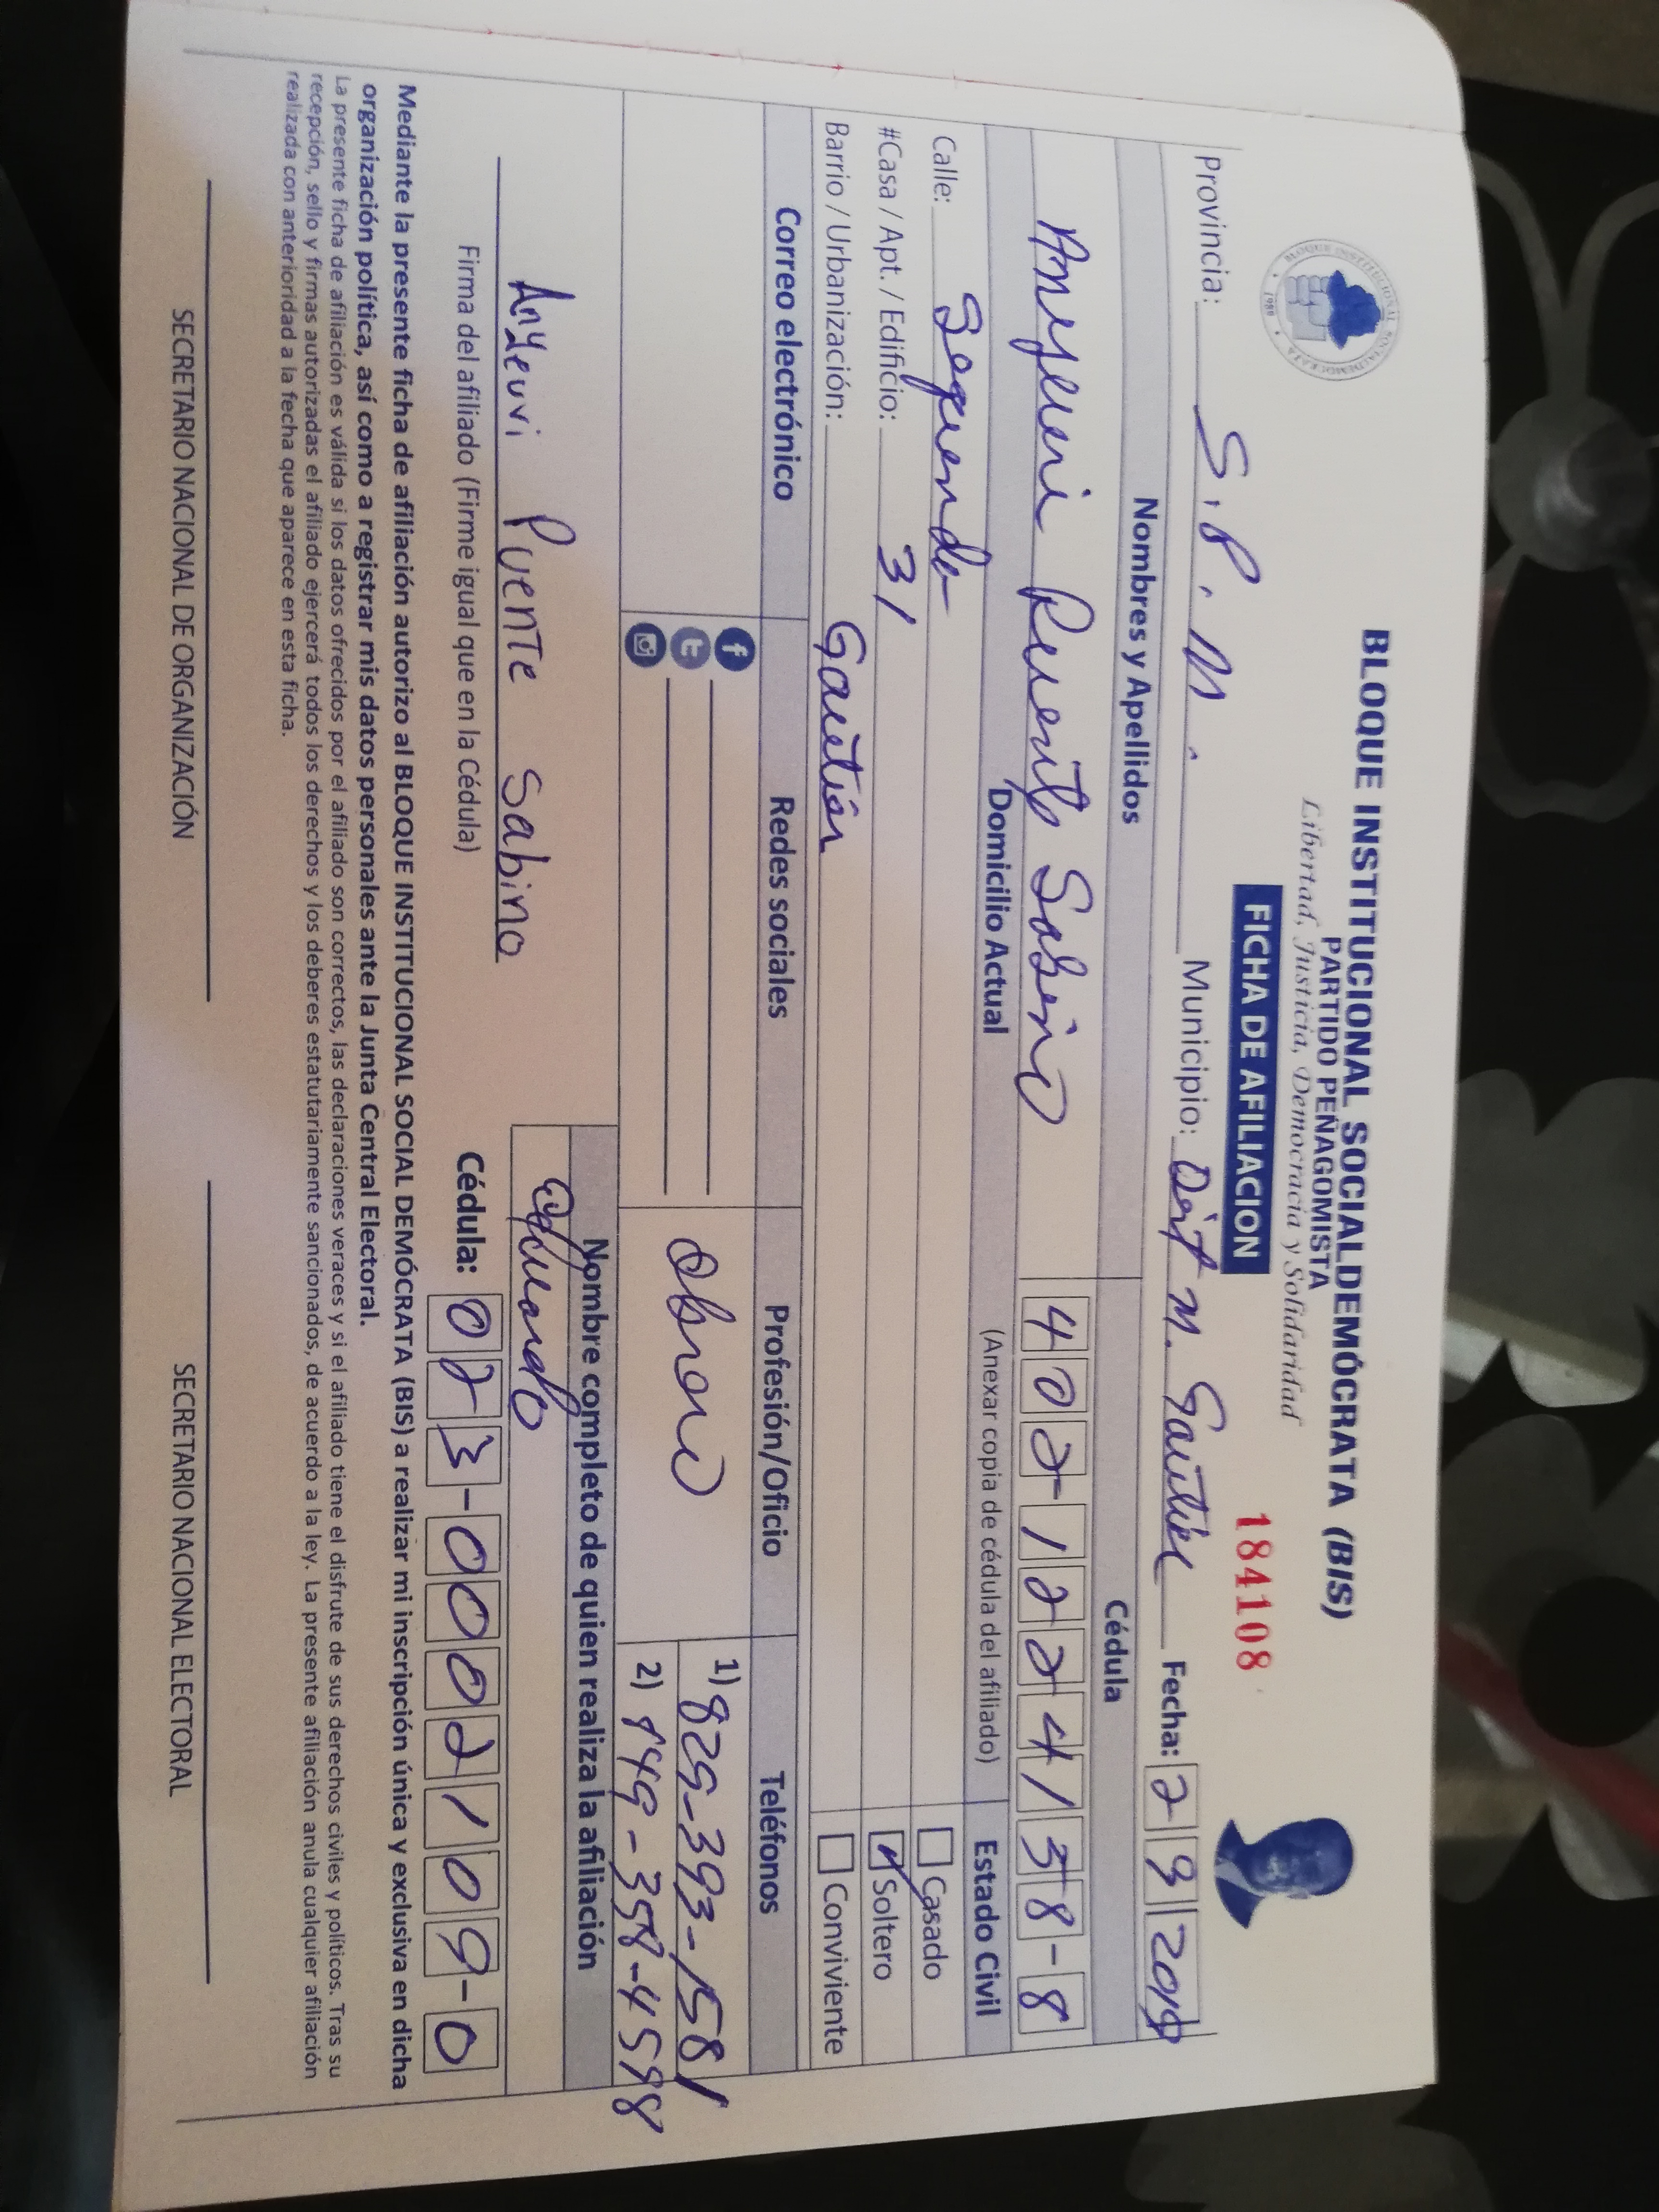 BLOQUE INSTITUCIONAL SOCIALDEMÓCRATA (BIS)
PARTIDO PEÑAGOMISTA
Libertad, Justicia, Democracia y Solidaridad
BLOQUE INSTITUCIONAL SOCIALDEMOCRATA
1989
FICHA DE AFILIACION
184108
Provincia: S.P.M. Municipio: Dist M. Gautier Fecha: 2 9 2019
Nombres y Apellidos Cédula
Anyeuri Puente Sabino 402-1224138-8
Domicilio Actual (Anexar copia de cédula del afiliado) Estado Civil
Calle: Segunda Casado
#Casa / Apt. / Edificio: 31 Soltero
Barrio / Urbanización: Gautier Conviviente
Correo electrónico Redes sociales Profesión/Oficio Teléfonos
Obrero
1) 829-393-1581
2) 849-358-4598
Nombre completo de quien realiza la afiliación
Anyeuvi Puente Sabino
Firma del afiliado (Firme igual que en la Cédula) Cédula: 023-0002109-0
Mediante la presente ficha de afiliación autorizo al BLOQUE INSTITUCIONAL SOCIAL DEMÓCRATA (BIS) a realizar mi inscripción única y exclusiva en dicha
organización política, así como a registrar mis datos personales ante la Junta Central Electoral.
La presente ficha de afiliación es válida si los datos ofrecidos por el afiliado son correctos, las declaraciones veraces y si el afiliado tiene el disfrute de sus derechos civiles y políticos. Tras su
recepción, sello y firmas autorizadas el afiliado ejercerá todos los derechos y los deberes estatutariamente sancionados, de acuerdo a la ley. La presente afiliación anula cualquier afiliación
realizada con anterioridad a la fecha que aparece en esta ficha.
SECRETARIO NACIONAL DE ORGANIZACIÓN SECRETARIO NACIONAL ELECTORAL